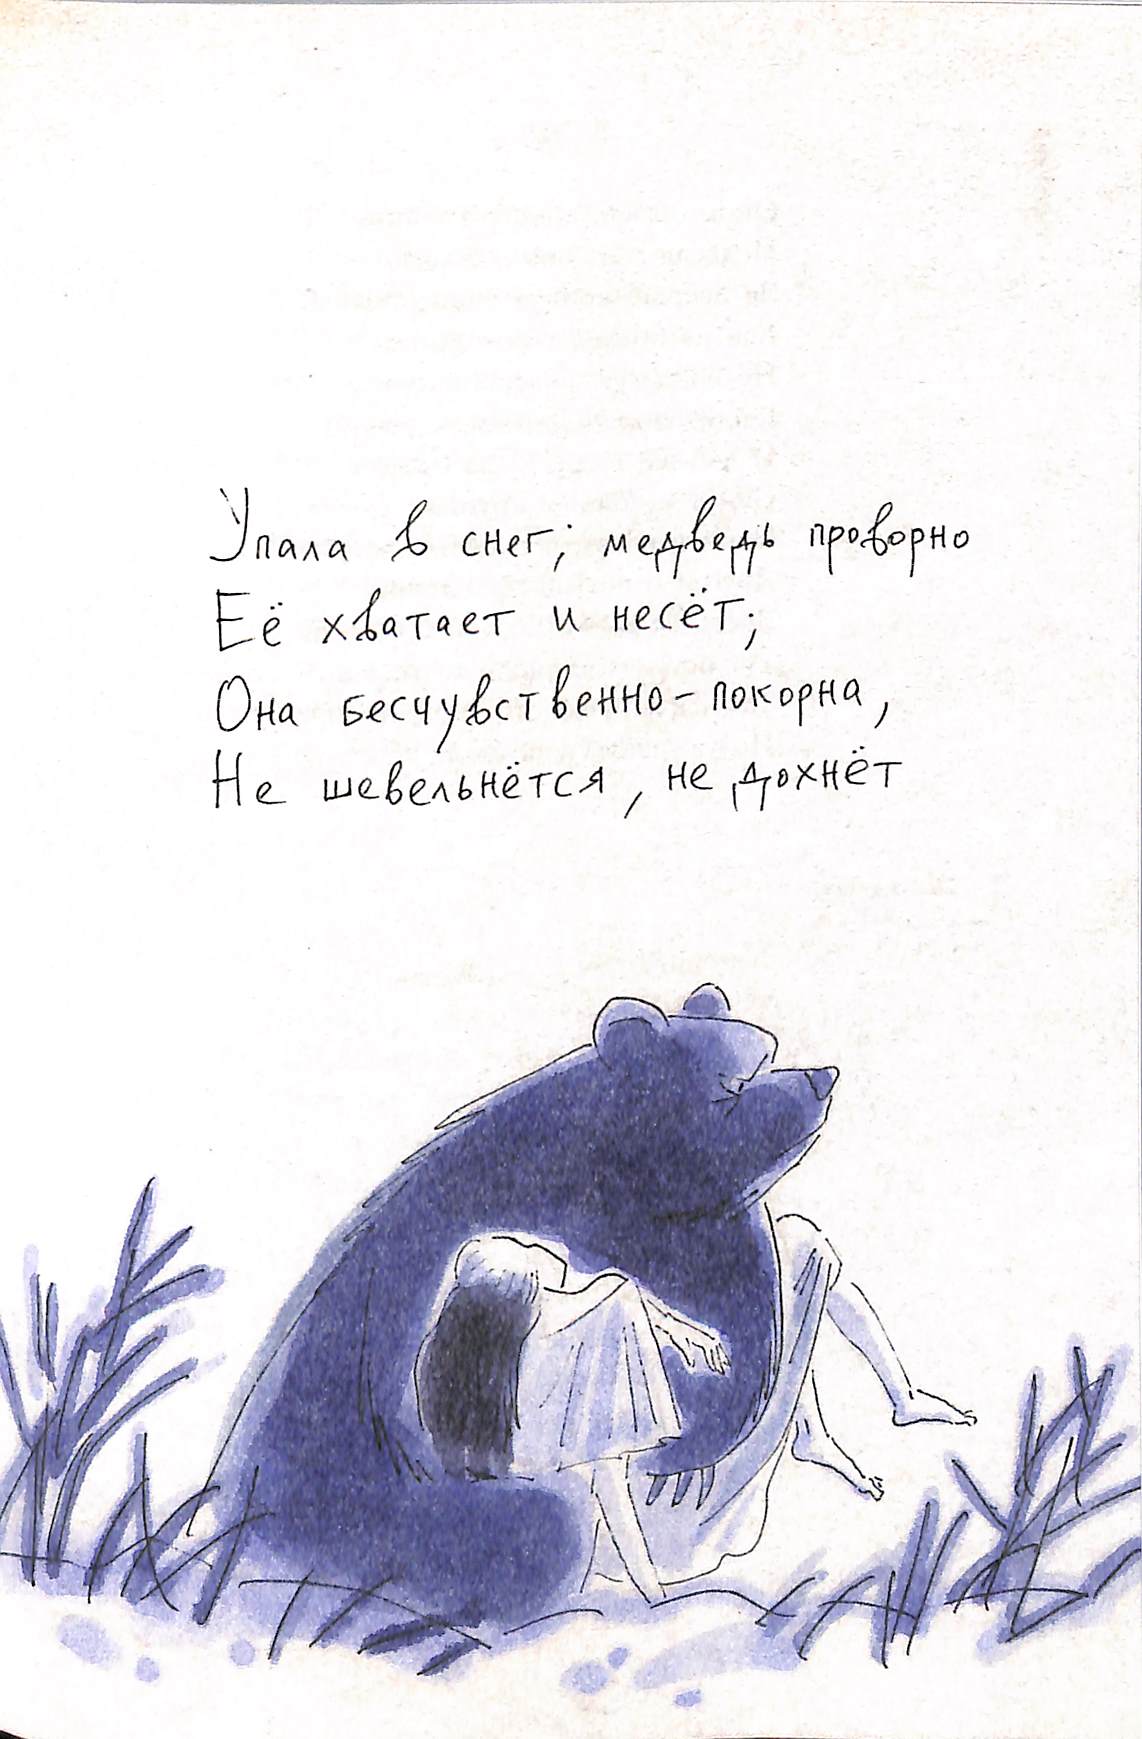 Упала в снег; медведь проворно
Её хватает и несёт;
Она бесчувственно-покорна,
Не шевельнётся, не дохнёт